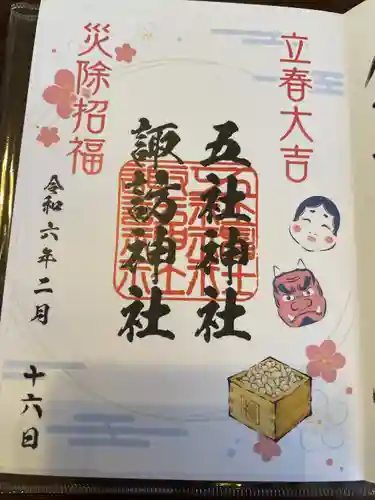 立春大吉
五社神社
諏訪神社
災除招福
令和六年二月
十六日